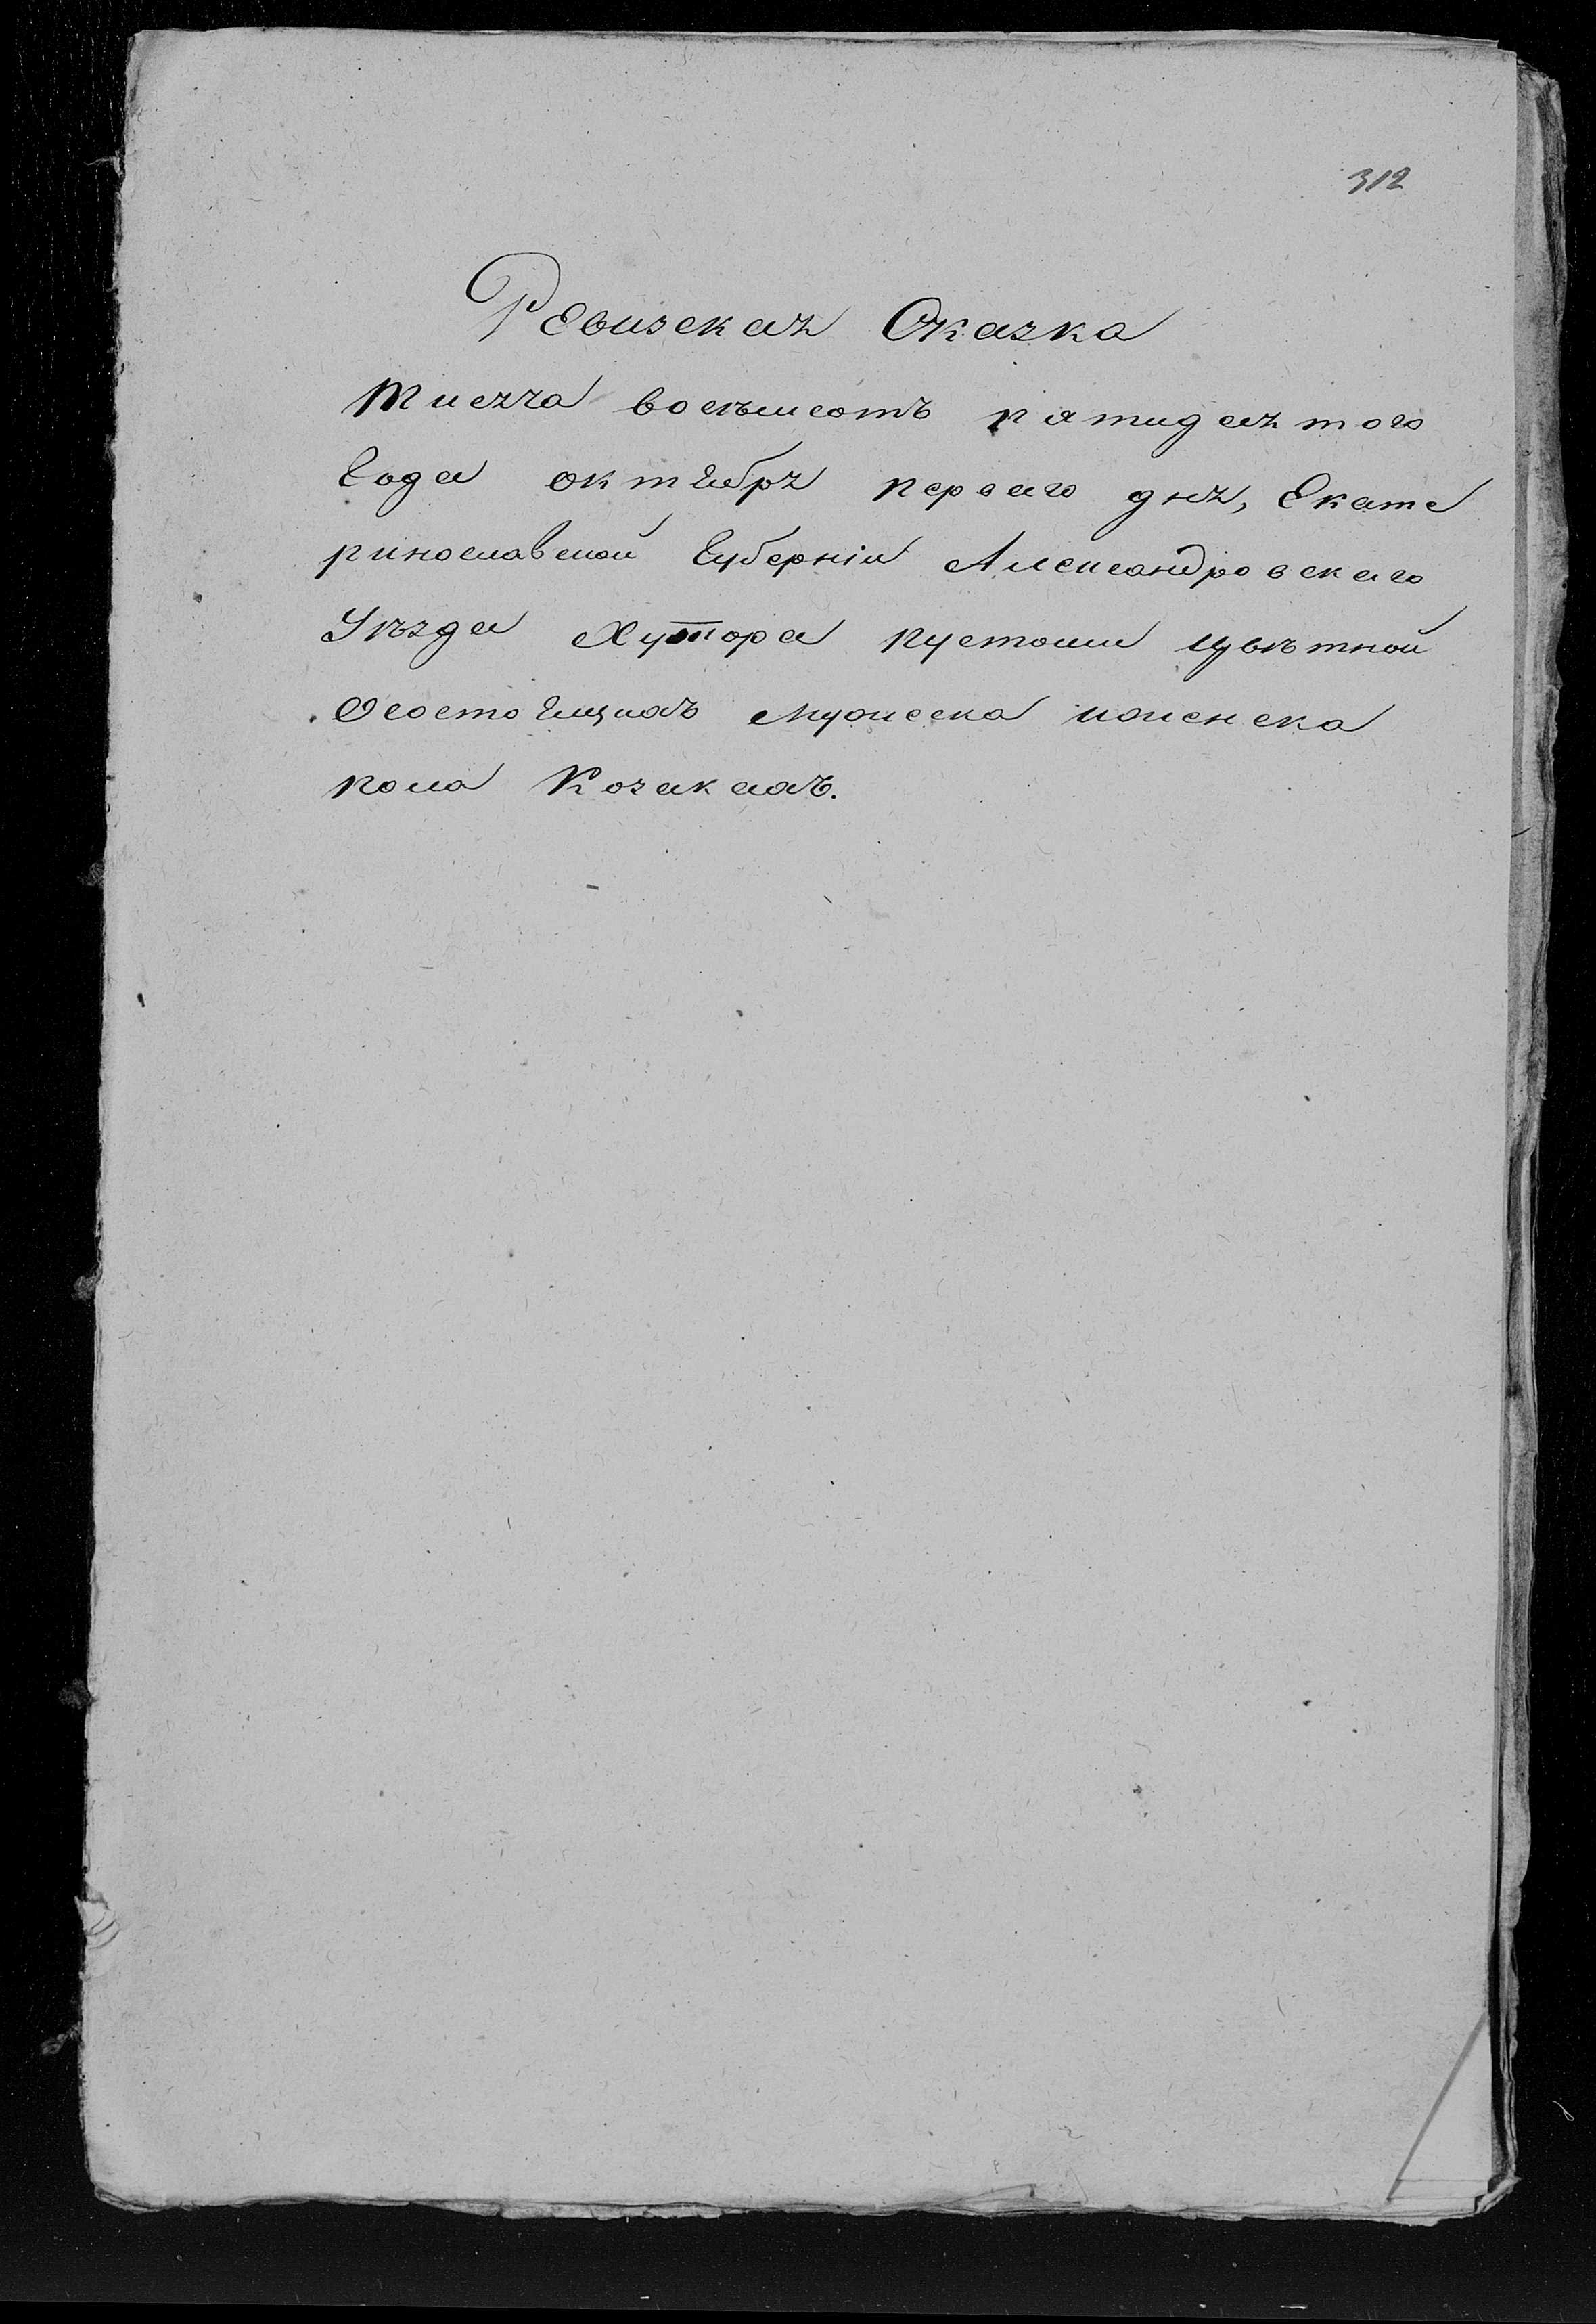 312
Ревизская Сказка
тисяча восѣмсотъ пятидесятого
Года октября первого дня, Екате
ринославской Губерніи Александровскаго
Уѣзда Хутора пустоши цвѣтной
О состоящихъ мужеска и женска
пола Козакахъ.